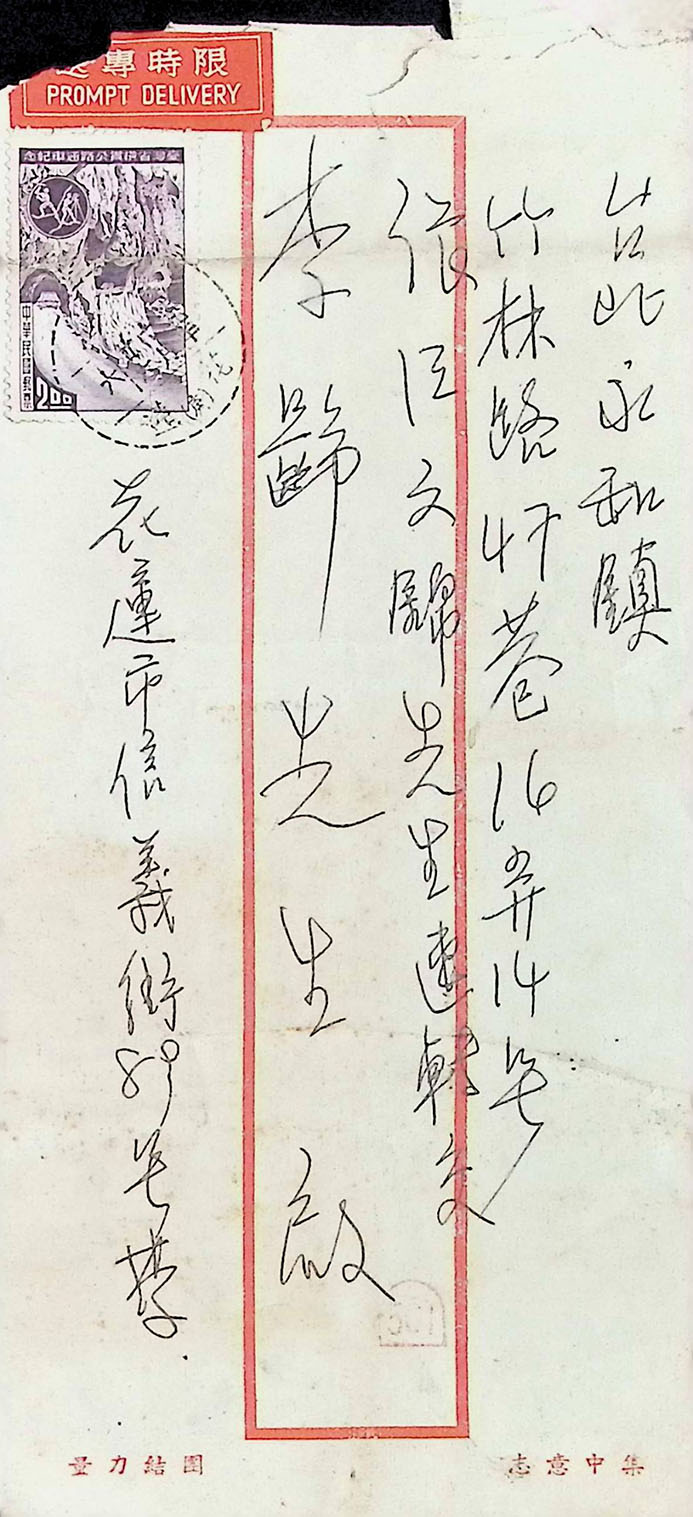 限時專送
PROMPT DELIVERY
臺灣省橫貫公路通車紀念
中華民國郵票
2.00
台北永和鎮
竹林路47巷16弄14号
文歸先生速轉交
李歸先生啟
花蓮市信義街89号李
集中意志
團結力量